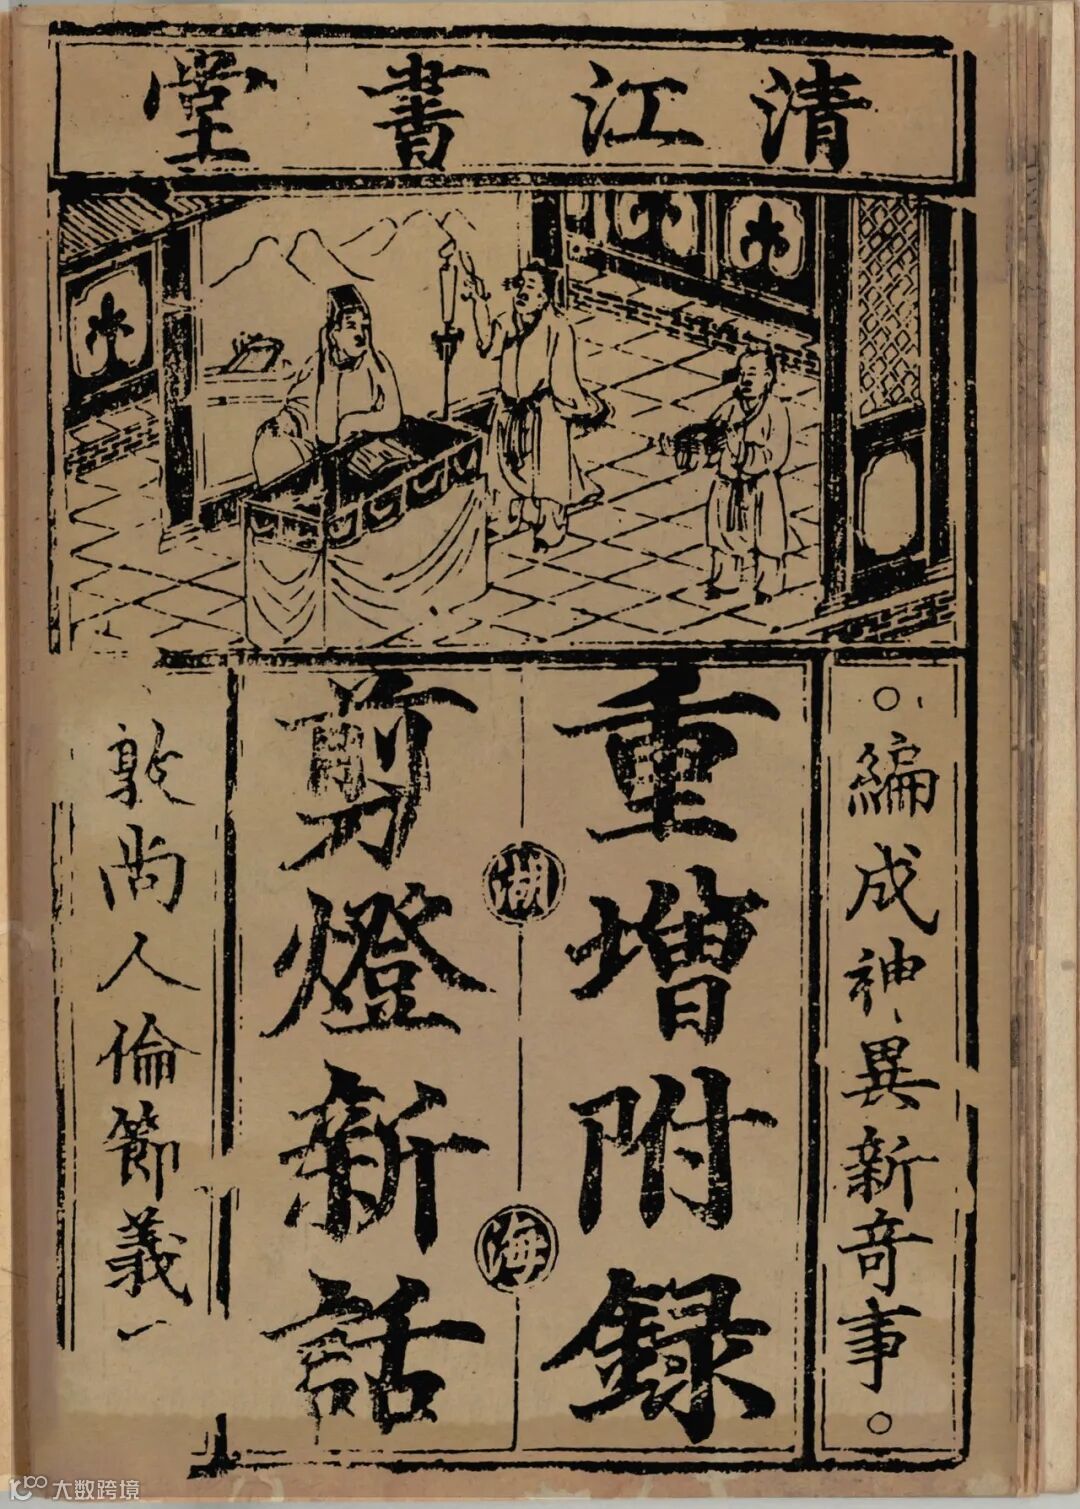 清江書堂
編成神異新奇事
重增附録
湖
海
剪燈新話
敦尚人倫節義
大数跨境